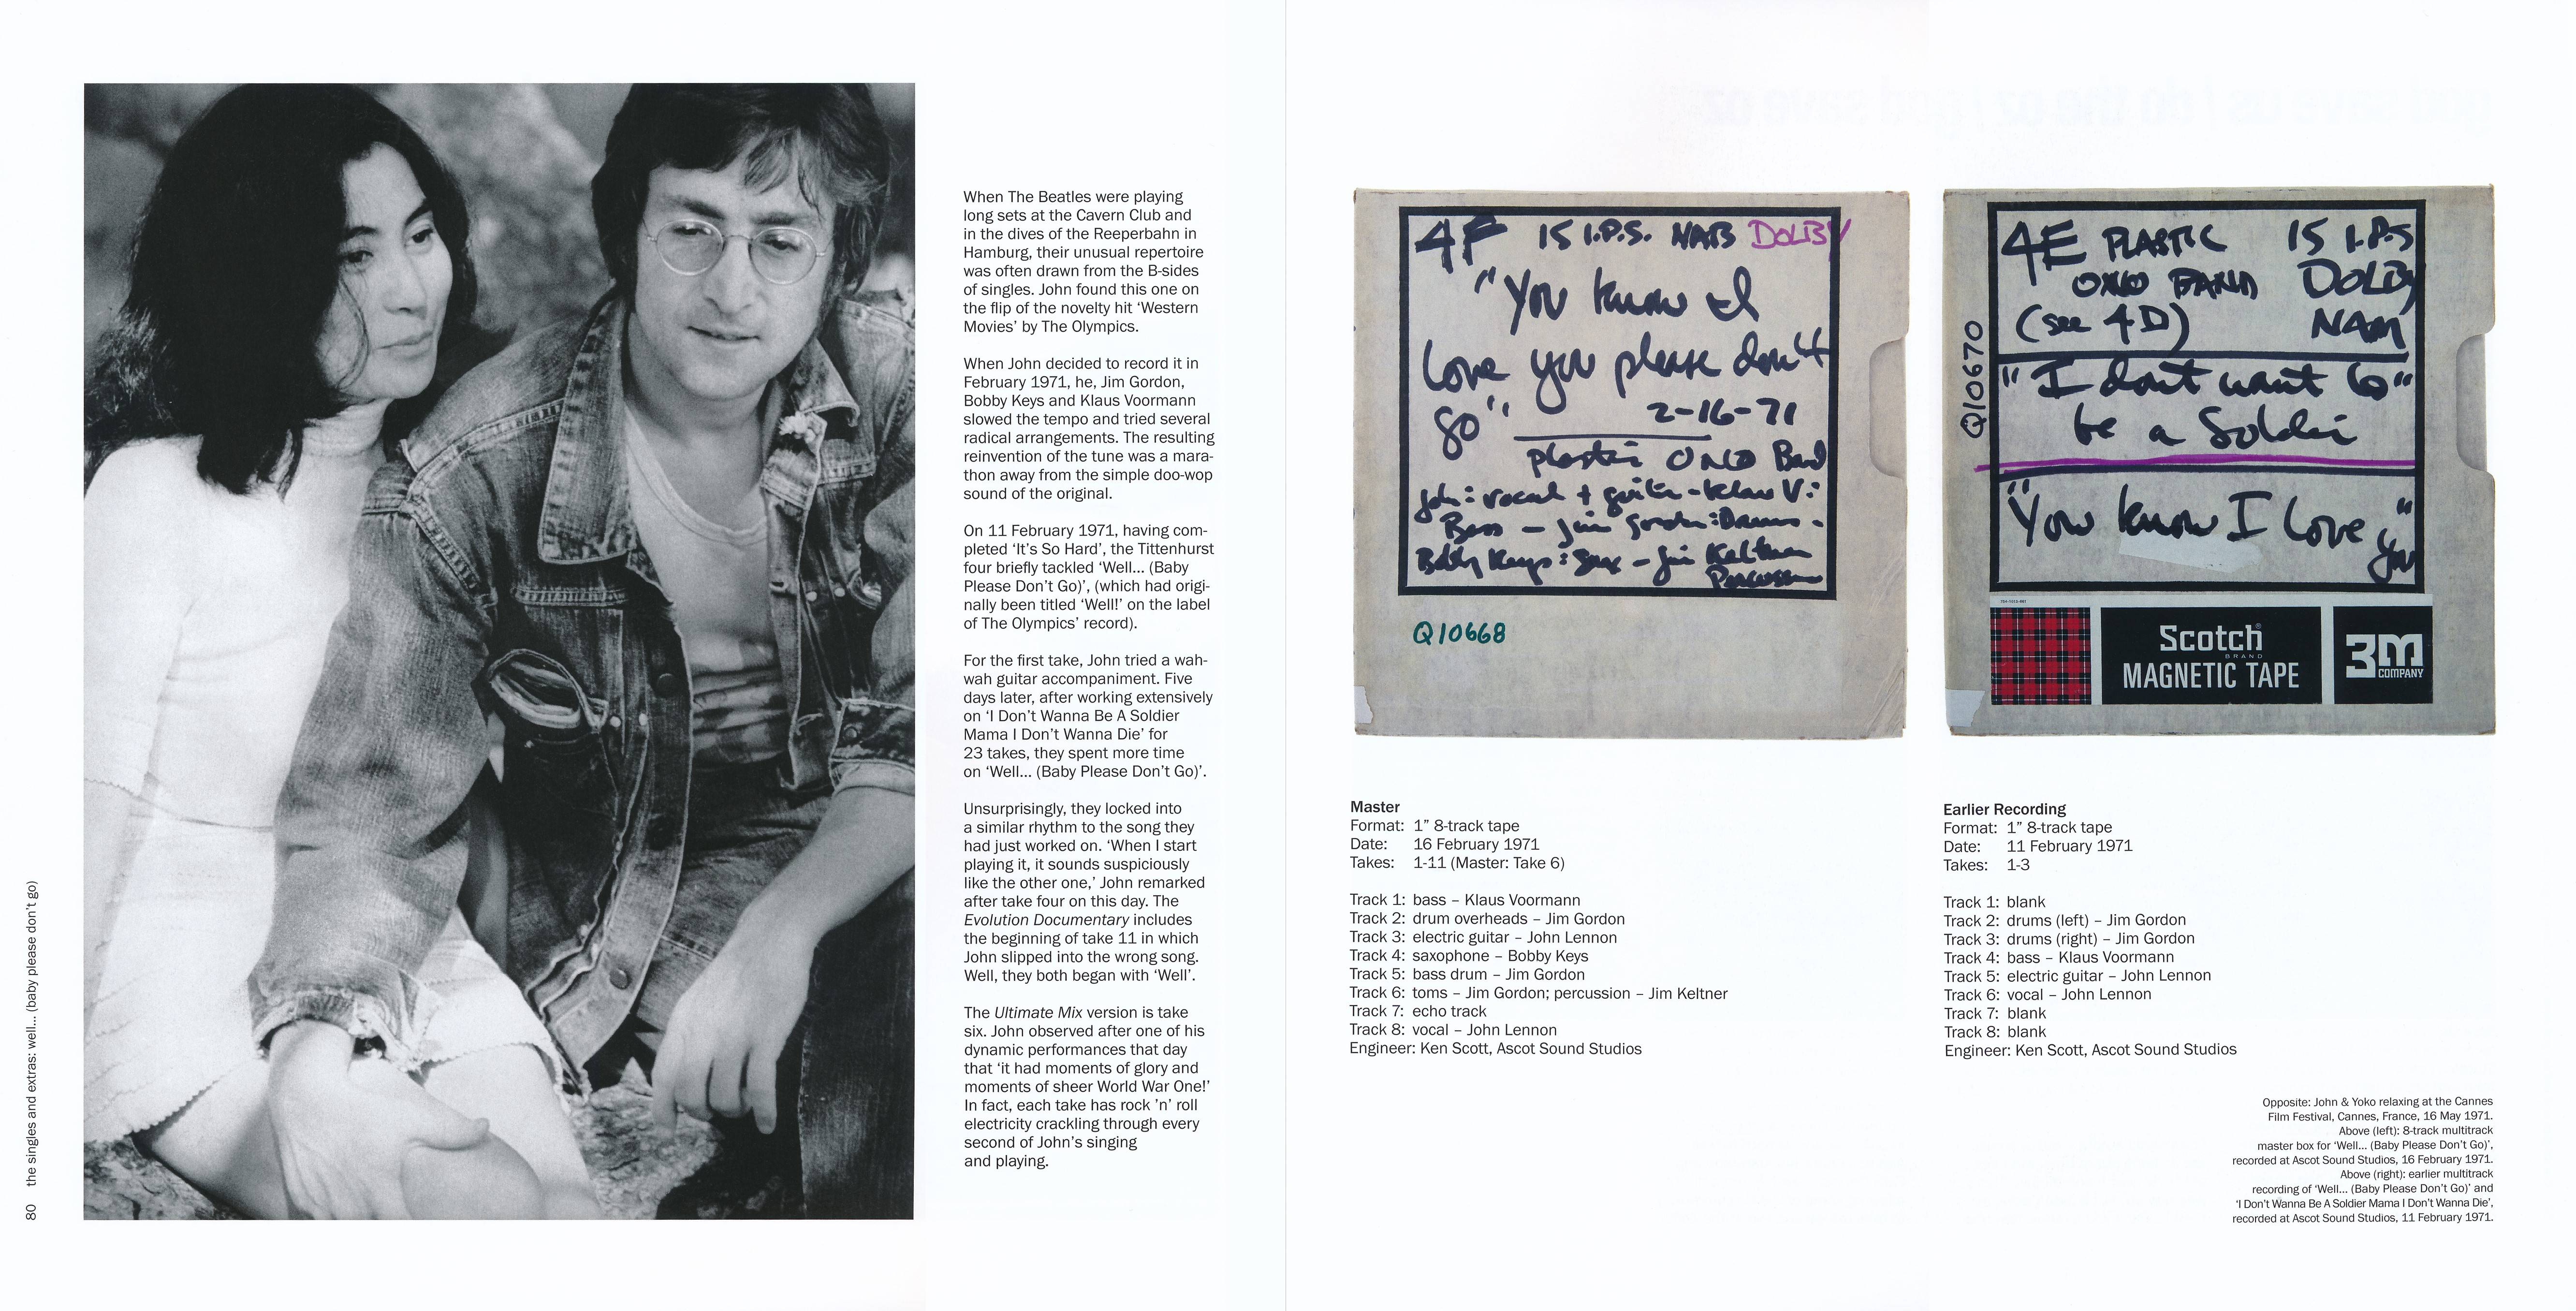 When The Beatles were playing
long sets at the Cavern Club and
in the dives of the Reeperbahn in
Hamburg, their unusual repertoire
was often drawn from the B-sides
of singles. John found this one on
the flip of the novelty hit ‘Western
Movies’ by The Olympics.
When John decided to record it in
February 1971, he, Jim Gordon,
Bobby Keys and Klaus Voormann
slowed the tempo and tried several
radical arrangements. The resulting
reinvention of the tune was a mara-
thon away from the simple doo-wop
sound of the original.
On 11 February 1971, having com-
pleted ‘It’s So Hard’, the Tittenhurst
four briefly tackled ‘Well... (Baby
Please Don’t Go)’, (which had origi-
nally been titled ‘Well!’ on the label
of The Olympics’ record).
For the first take, John tried a wah-
wah guitar accompaniment. Five
days later, after working extensively
on ‘I Don’t Wanna Be A Soldier
Mama I Don’t Wanna Die’ for
23 takes, they spent more time
on ‘Well... (Baby Please Don’t Go)’.
Unsurprisingly, they locked into
a similar rhythm to the song they
had just worked on. ‘When I start
playing it, it sounds suspiciously
like the other one,’ John remarked
after take four on this day. The
Evolution Documentary includes
the beginning of take 11 in which
John slipped into the wrong song.
Well, they both began with ‘Well’.
The Ultimate Mix version is take
six. John observed after one of his
dynamic performances that day
that ‘it had moments of glory and
moments of sheer World War One!’
In fact, each take has rock ’n’ roll
electricity crackling through every
second of John’s singing
and playing.
80 the singles and extras: well... (baby please don’t go)
4F 15 I.P.S. NAB DOLBY
"You know I
Love you please don't
go" 2-16-71
plastic ONO Band
John: vocal + guitar - Klaus V:
Bass - Jim Gordon: Drums -
Bobby Keys: Sax - Jim Keltner
Percussion
Q10668
4E PLASTIC 15 I.P.S
ONO BAND DOLBY
(see 4D) NAM
Q10670
"I dont want to"
be a Soldier
"You know I Love
you"
Scotch®
BRAND
MAGNETIC TAPE
3M
COMPANY
Master
Format: 1” 8-track tape
Date: 16 February 1971
Takes: 1-11 (Master: Take 6)
Track 1: bass – Klaus Voormann
Track 2: drum overheads – Jim Gordon
Track 3: electric guitar – John Lennon
Track 4: saxophone – Bobby Keys
Track 5: bass drum – Jim Gordon
Track 6: toms – Jim Gordon; percussion – Jim Keltner
Track 7: echo track
Track 8: vocal – John Lennon
Engineer: Ken Scott, Ascot Sound Studios
Earlier Recording
Format: 1” 8-track tape
Date: 11 February 1971
Takes: 1-3
Track 1: blank
Track 2: drums (left) – Jim Gordon
Track 3: drums (right) – Jim Gordon
Track 4: bass – Klaus Voormann
Track 5: electric guitar – John Lennon
Track 6: vocal – John Lennon
Track 7: blank
Track 8: blank
Engineer: Ken Scott, Ascot Sound Studios
Opposite: John & Yoko relaxing at the Cannes
Film Festival, Cannes, France, 16 May 1971.
Above (left): 8-track multitrack
master box for ‘Well... (Baby Please Don’t Go)’,
recorded at Ascot Sound Studios, 16 February 1971.
Above (right): earlier multitrack
recording of ‘Well... (Baby Please Don’t Go)’ and
‘I Don’t Wanna Be A Soldier Mama I Don’t Wanna Die’,
recorded at Ascot Sound Studios, 11 February 1971.